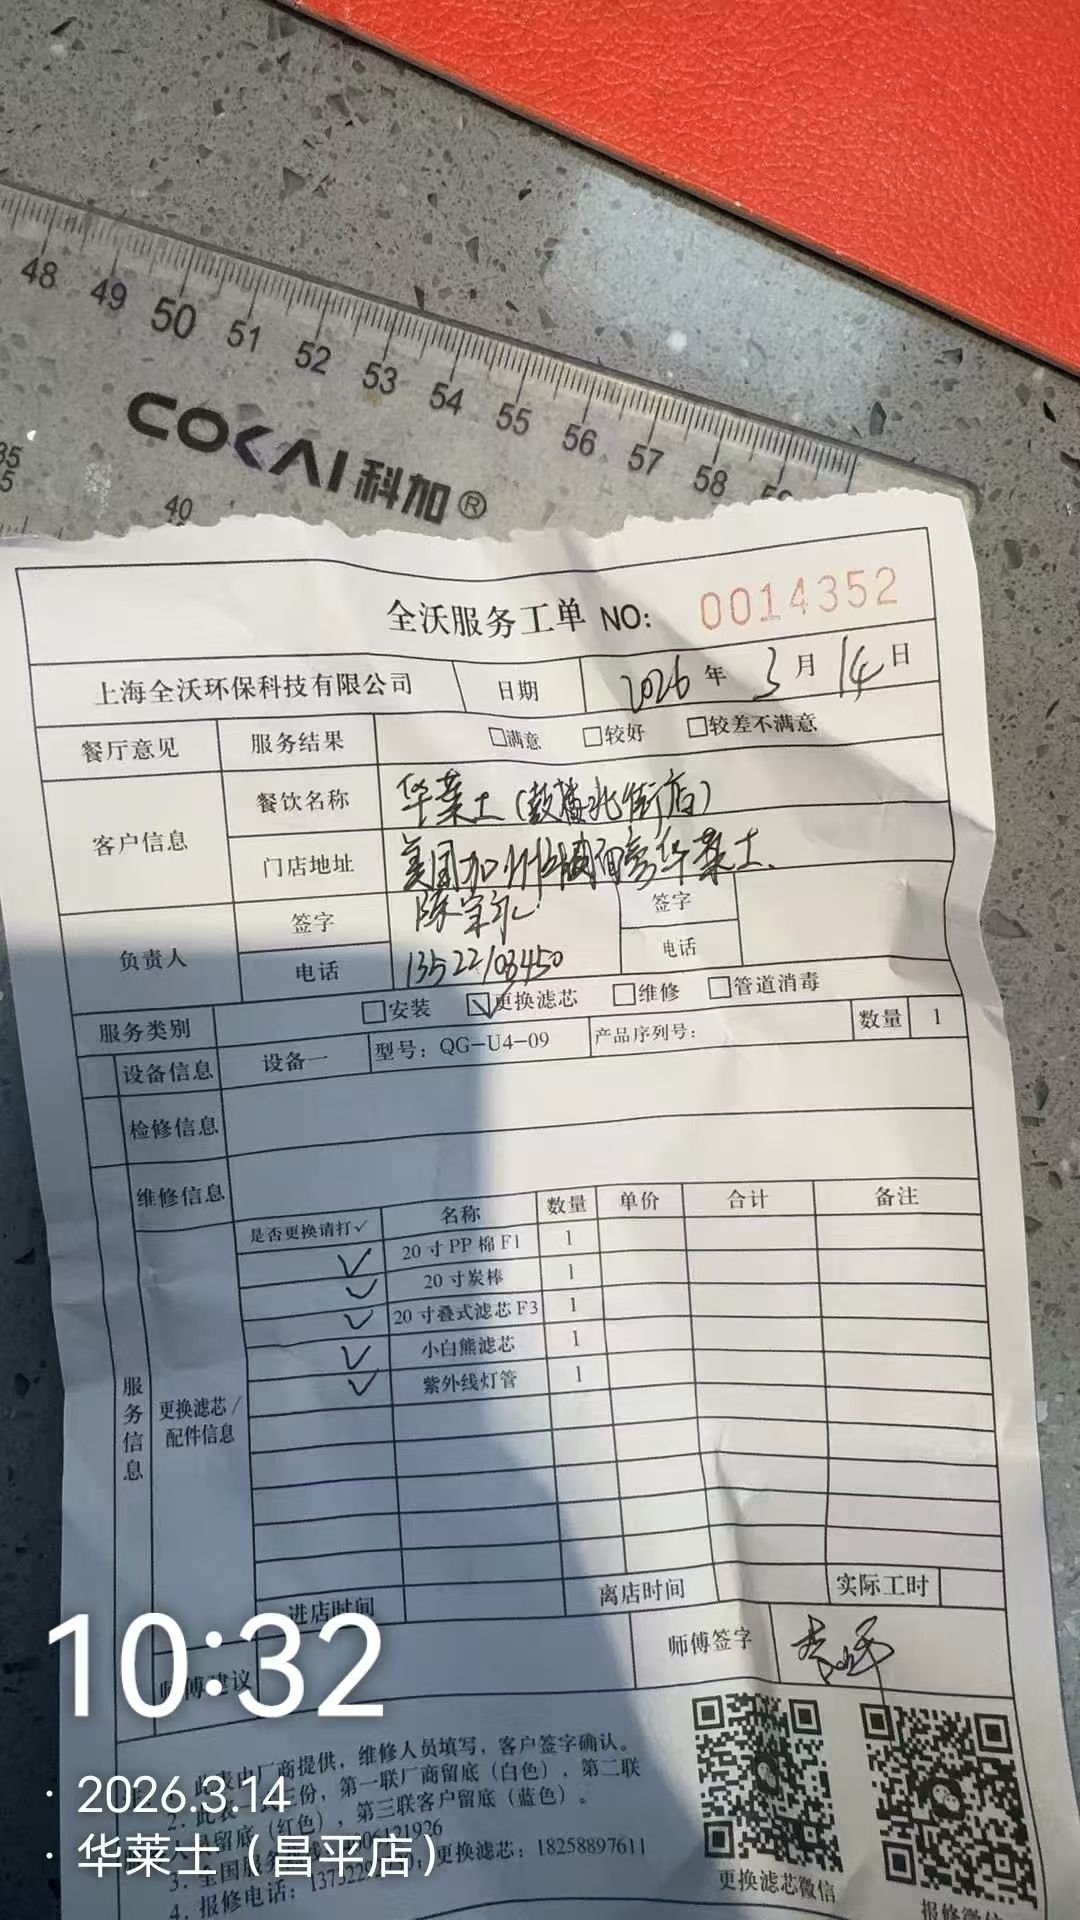 48 49 50 51 52 53 54 55 56 57 58
COKAI科加®
40
全沃服务工单 NO: 0014352
上海全沃环保科技有限公司 日期 2026年3月14日
餐厅意见 服务结果 □满意 □较好 □较差不满意
客户信息 餐饮名称 华莱士(鼓楼北街店)
门店地址 美国加州 华莱士
负责人 签字 陈 签字
电话 13522103450 电话
服务类别 □安装 ☑更换滤芯 □维修 □管道消毒
设备信息 设备一 型号：QG-U4-09 产品序列号： 数量 1
检修信息
维修信息
服务信息
更换滤芯/配件信息
是否更换请打✓ 名称 数量 单价 合计 备注
✓ 20寸PP棉F1 1
✓ 20寸炭棒 1
✓ 20寸叠式滤芯F3 1
✓ 小白熊滤芯 1
✓ 紫外线灯管 1
进店时间 离店时间 实际工时
师傅建议 师傅签字
此表由厂商提供，维修人员填写，客户签字确认。
2. 此表一式三份，第一联厂商留底（白色），第二联
留底（红色），第三联客户留底（蓝色）。
3. 全国服务
4. 报修电话： 更换滤芯：18258897611
更换滤芯微信
报修微信
10:32
· 2026.3.14
· 华莱士（昌平店）